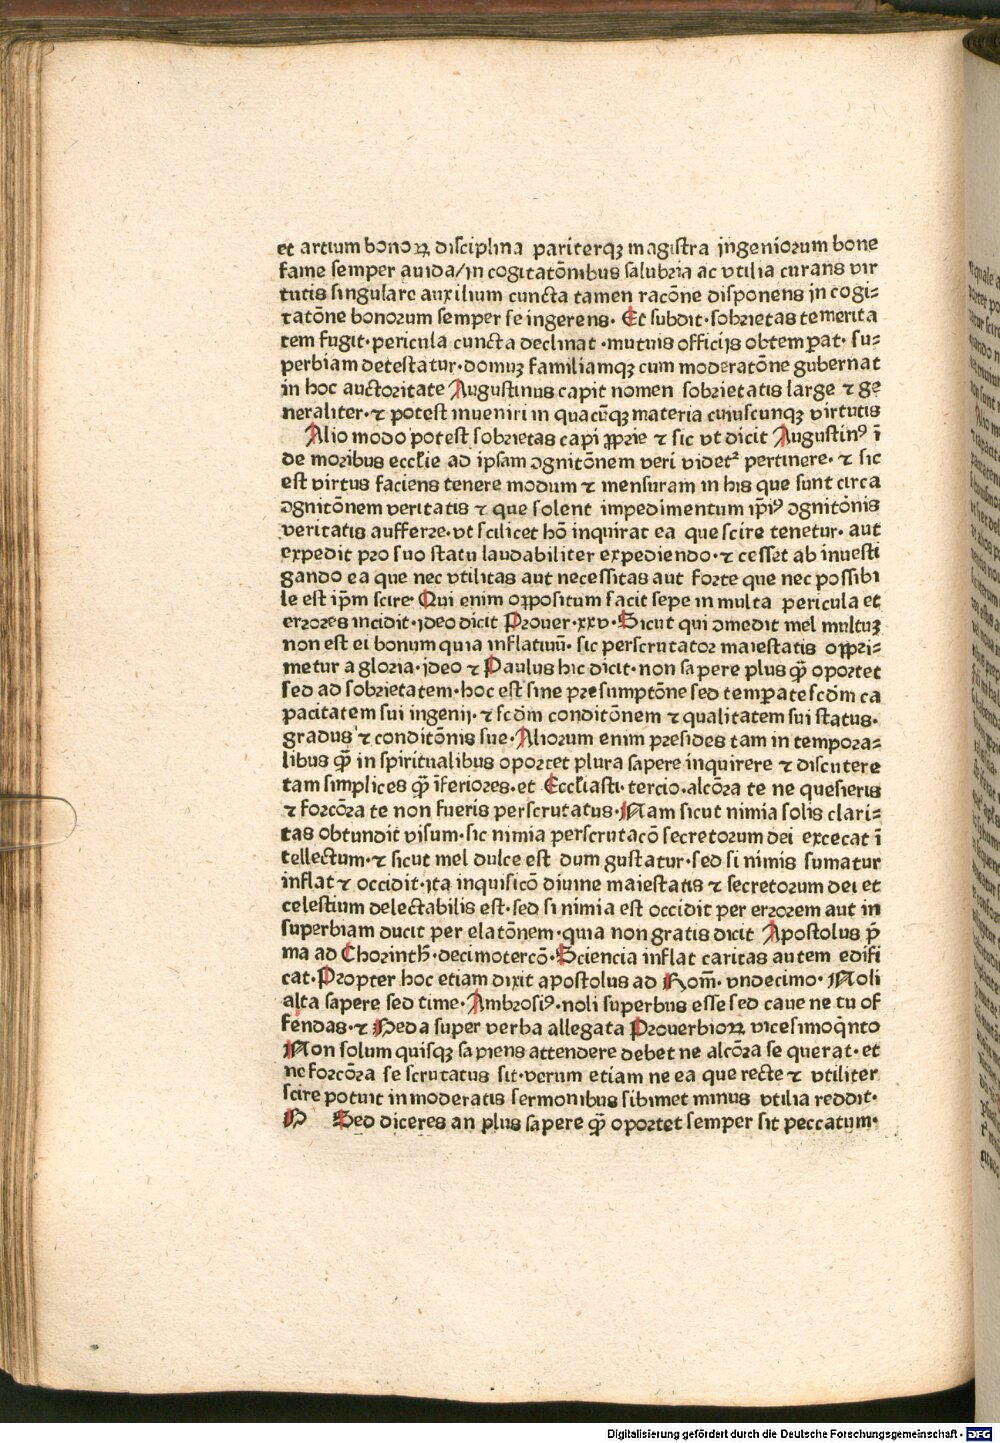 et artium bonoꝝ disciplina pariterqꝫ magistra ingeniorum bone
fame semper auida/in cogitatōnibus salubria ac vtilia curans vir
tutis singulare auxilium cuncta tamen racōne disponens in cogi⸗
tatōne bonorum semper se ingerens· Et subdit·sobrietas temerita
tem fugit·pericula cuncta declinat ·mutuis officijs obtemꝑat· su⸗
perbiam detestatur·domuꝫ familiamqꝫ cum moderatōne gubernat
in hoc auctoritate Augustinus capit nomen sobrietatis large ⁊ ge
neraliter·⁊ potest inueniri in quacūqꝫ materia cuiuscunqꝫ virtutis
Alio modo potest sobrietas capi ꝓprie ⁊ sic vt dicit Augustinꝰ ī
de moribus ecclīe ad ipsam ↄgnitōnem veri videtᷣ pertinere· ⁊ sic
est virtus faciens tenere modum ⁊ mensuram in his que sunt circa
ↄgnitōnem veritatis ⁊ que solent impedimentum ip̄iꝰ ↄgnitōnis
veritatis aufferre·vt scilicet hō inquirat ea que scire tenetur· aut
expedit pro suo statu laudabiliter expediendo·⁊ cesset ab inuesti
gando ea que nec vtilitas aut necessitas aut forte que nec possibi
le est ip̄m scire· Qui enim oꝓpositum facit sepe in multa pericula et
errores incidit·ideo dicit Prouer·xxv·Sicut qui ↄmedit mel multuꝫ
non est ei bonum quia inflatiuū· sic perscrutator maiestatis oꝓpri⸗
metur a gloria·ideo ⁊ Paulus hic dicit·non sapere plus q̄ꝫ oportet
sed ad sobrietatem·hoc est sine presumptōne sed temꝑate scd̄m ca
pacitatem sui ingenij·⁊ scd̄m conditōnem ⁊ qualitatem sui status·
gradus ⁊ conditōnis sue·Aliorum enim presides tam in tempora⸗
libus q̄ꝫ in spiritualibus oportet plura sapere inquirere ⁊ discutere
tam simplices q̄ꝫ īferiores·et Eccłiasti·tercio·alcōra te ne quesieris
⁊ forcōra te non fueris perscrutatus·Nam sicut nimia solis clari⸗
tas obtundit visum·sic nimia perscrutacō secretorum dei excecat ī
tellectum·⁊ sicut mel dulce est dum gustatur·sed si nimis sumatur
inflat ⁊ occidit·ita inquisicō diuine maiestatis ⁊ secretorum dei et
celestium delectabilis est·sed si nimia est occidit per errorem aut in
superbiam ducit per elatōnem·quia non gratis dicit Apostolus p̄
ma ad Chorinth̄·decimotercō·Sciencia inflat caritas autem edifi
cat·Propter hoc etiam dixit apostolus ad Rom̄· vndecimo· Noli
alta sapere sed time·Ambrosiꝰ·noli superbus esse sed caue ne tu of
fendas·⁊ Beda super verba allegata Prouerbioꝝ vicesimoq̄nto
Non solum quisqꝫ sapiens attendere debet ne alcōra se querat·et
ne forcōra se scrutatus sit·verum etiam ne ea que recte ⁊ vtiliter
scire potuit inmoderatis sermonibus sibimet minus vtilia reddit·
N Sed diceres an plus sapere q̄ꝫ oportet semper sit peccatum·
Digitalisierung gefördert durch die Deutsche Forschungsgemeinschaft - DFG